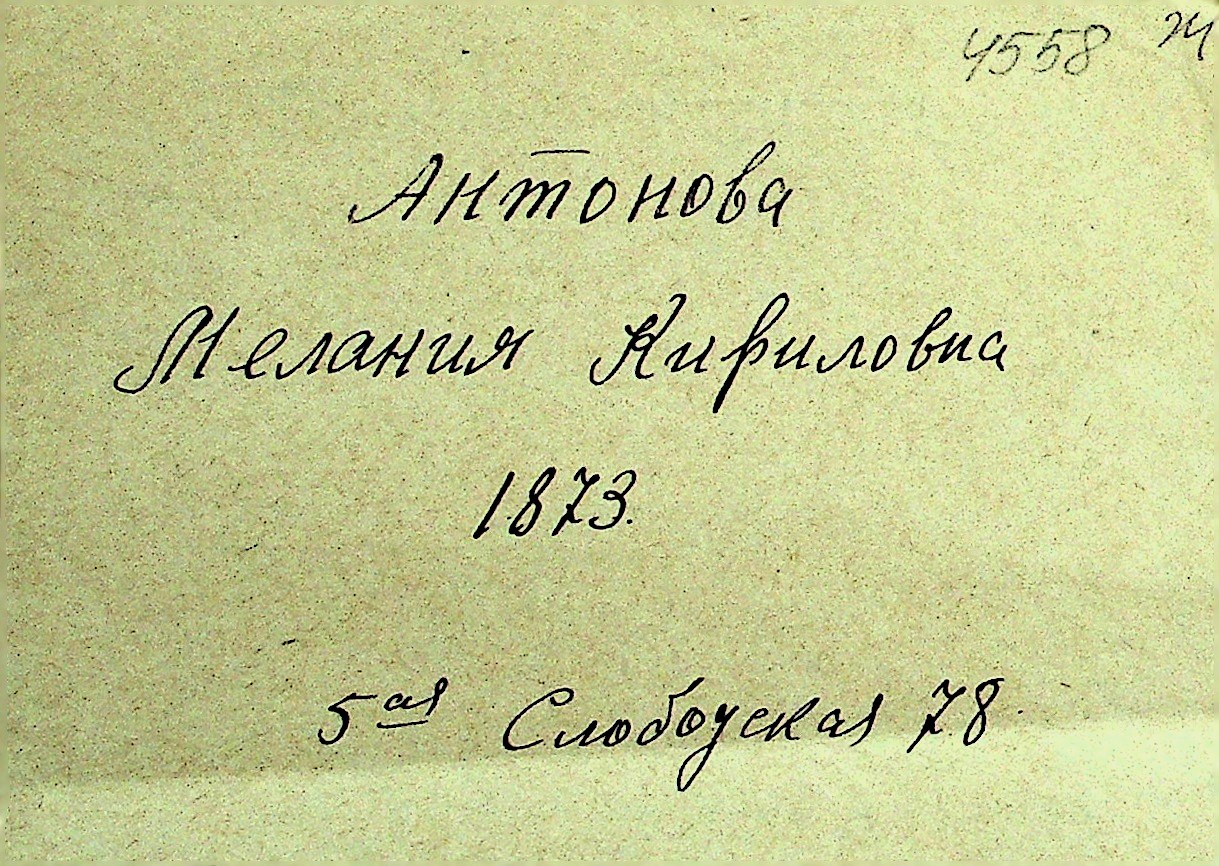 4558 Ж
Антонова
Мелания Кириловна
1873.
5ая Слободская 78